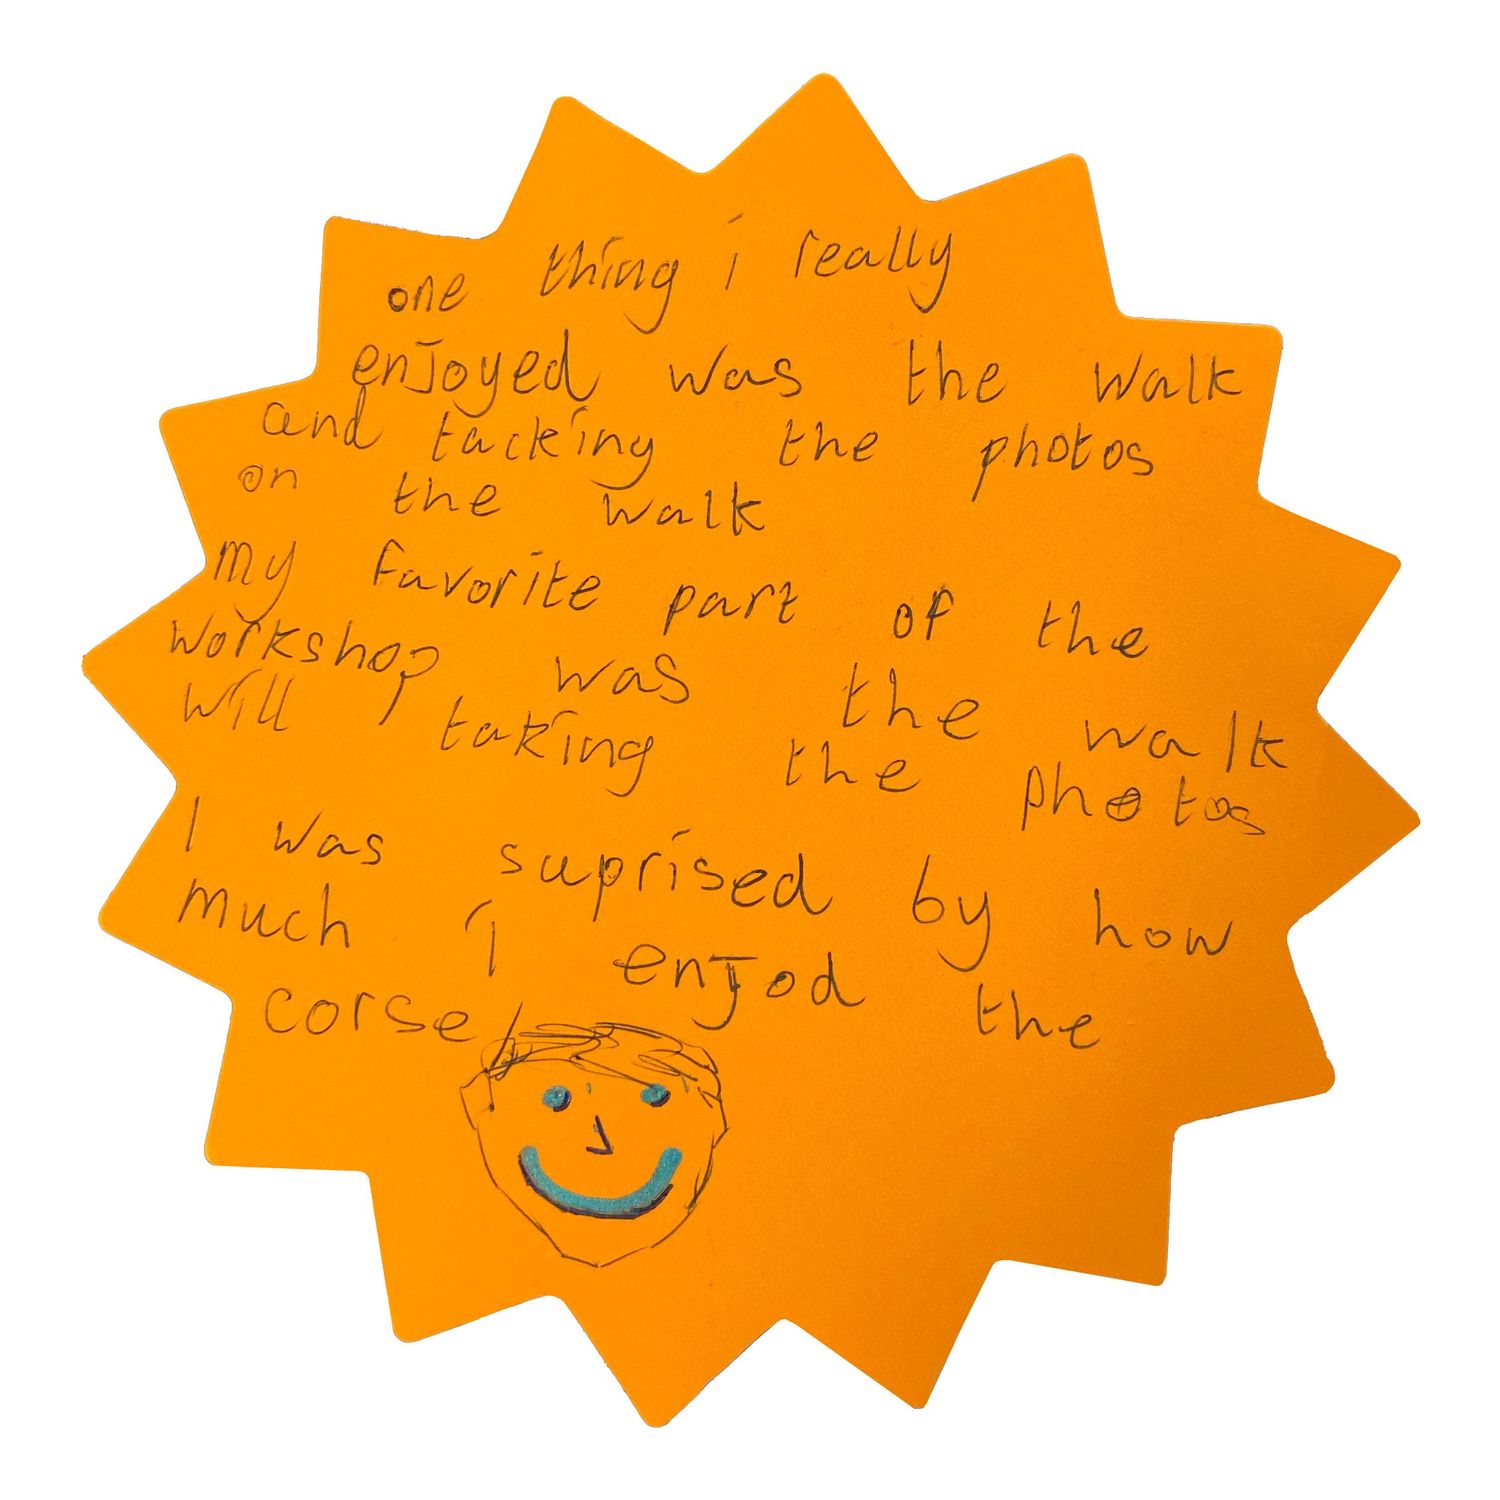 one thing i really
enjoyed was the walk
and tacking the photos
on the walk
my favorite part of the
workshop was the walk
will taking the photos
I was suprised by how
much i enjod the
corse!